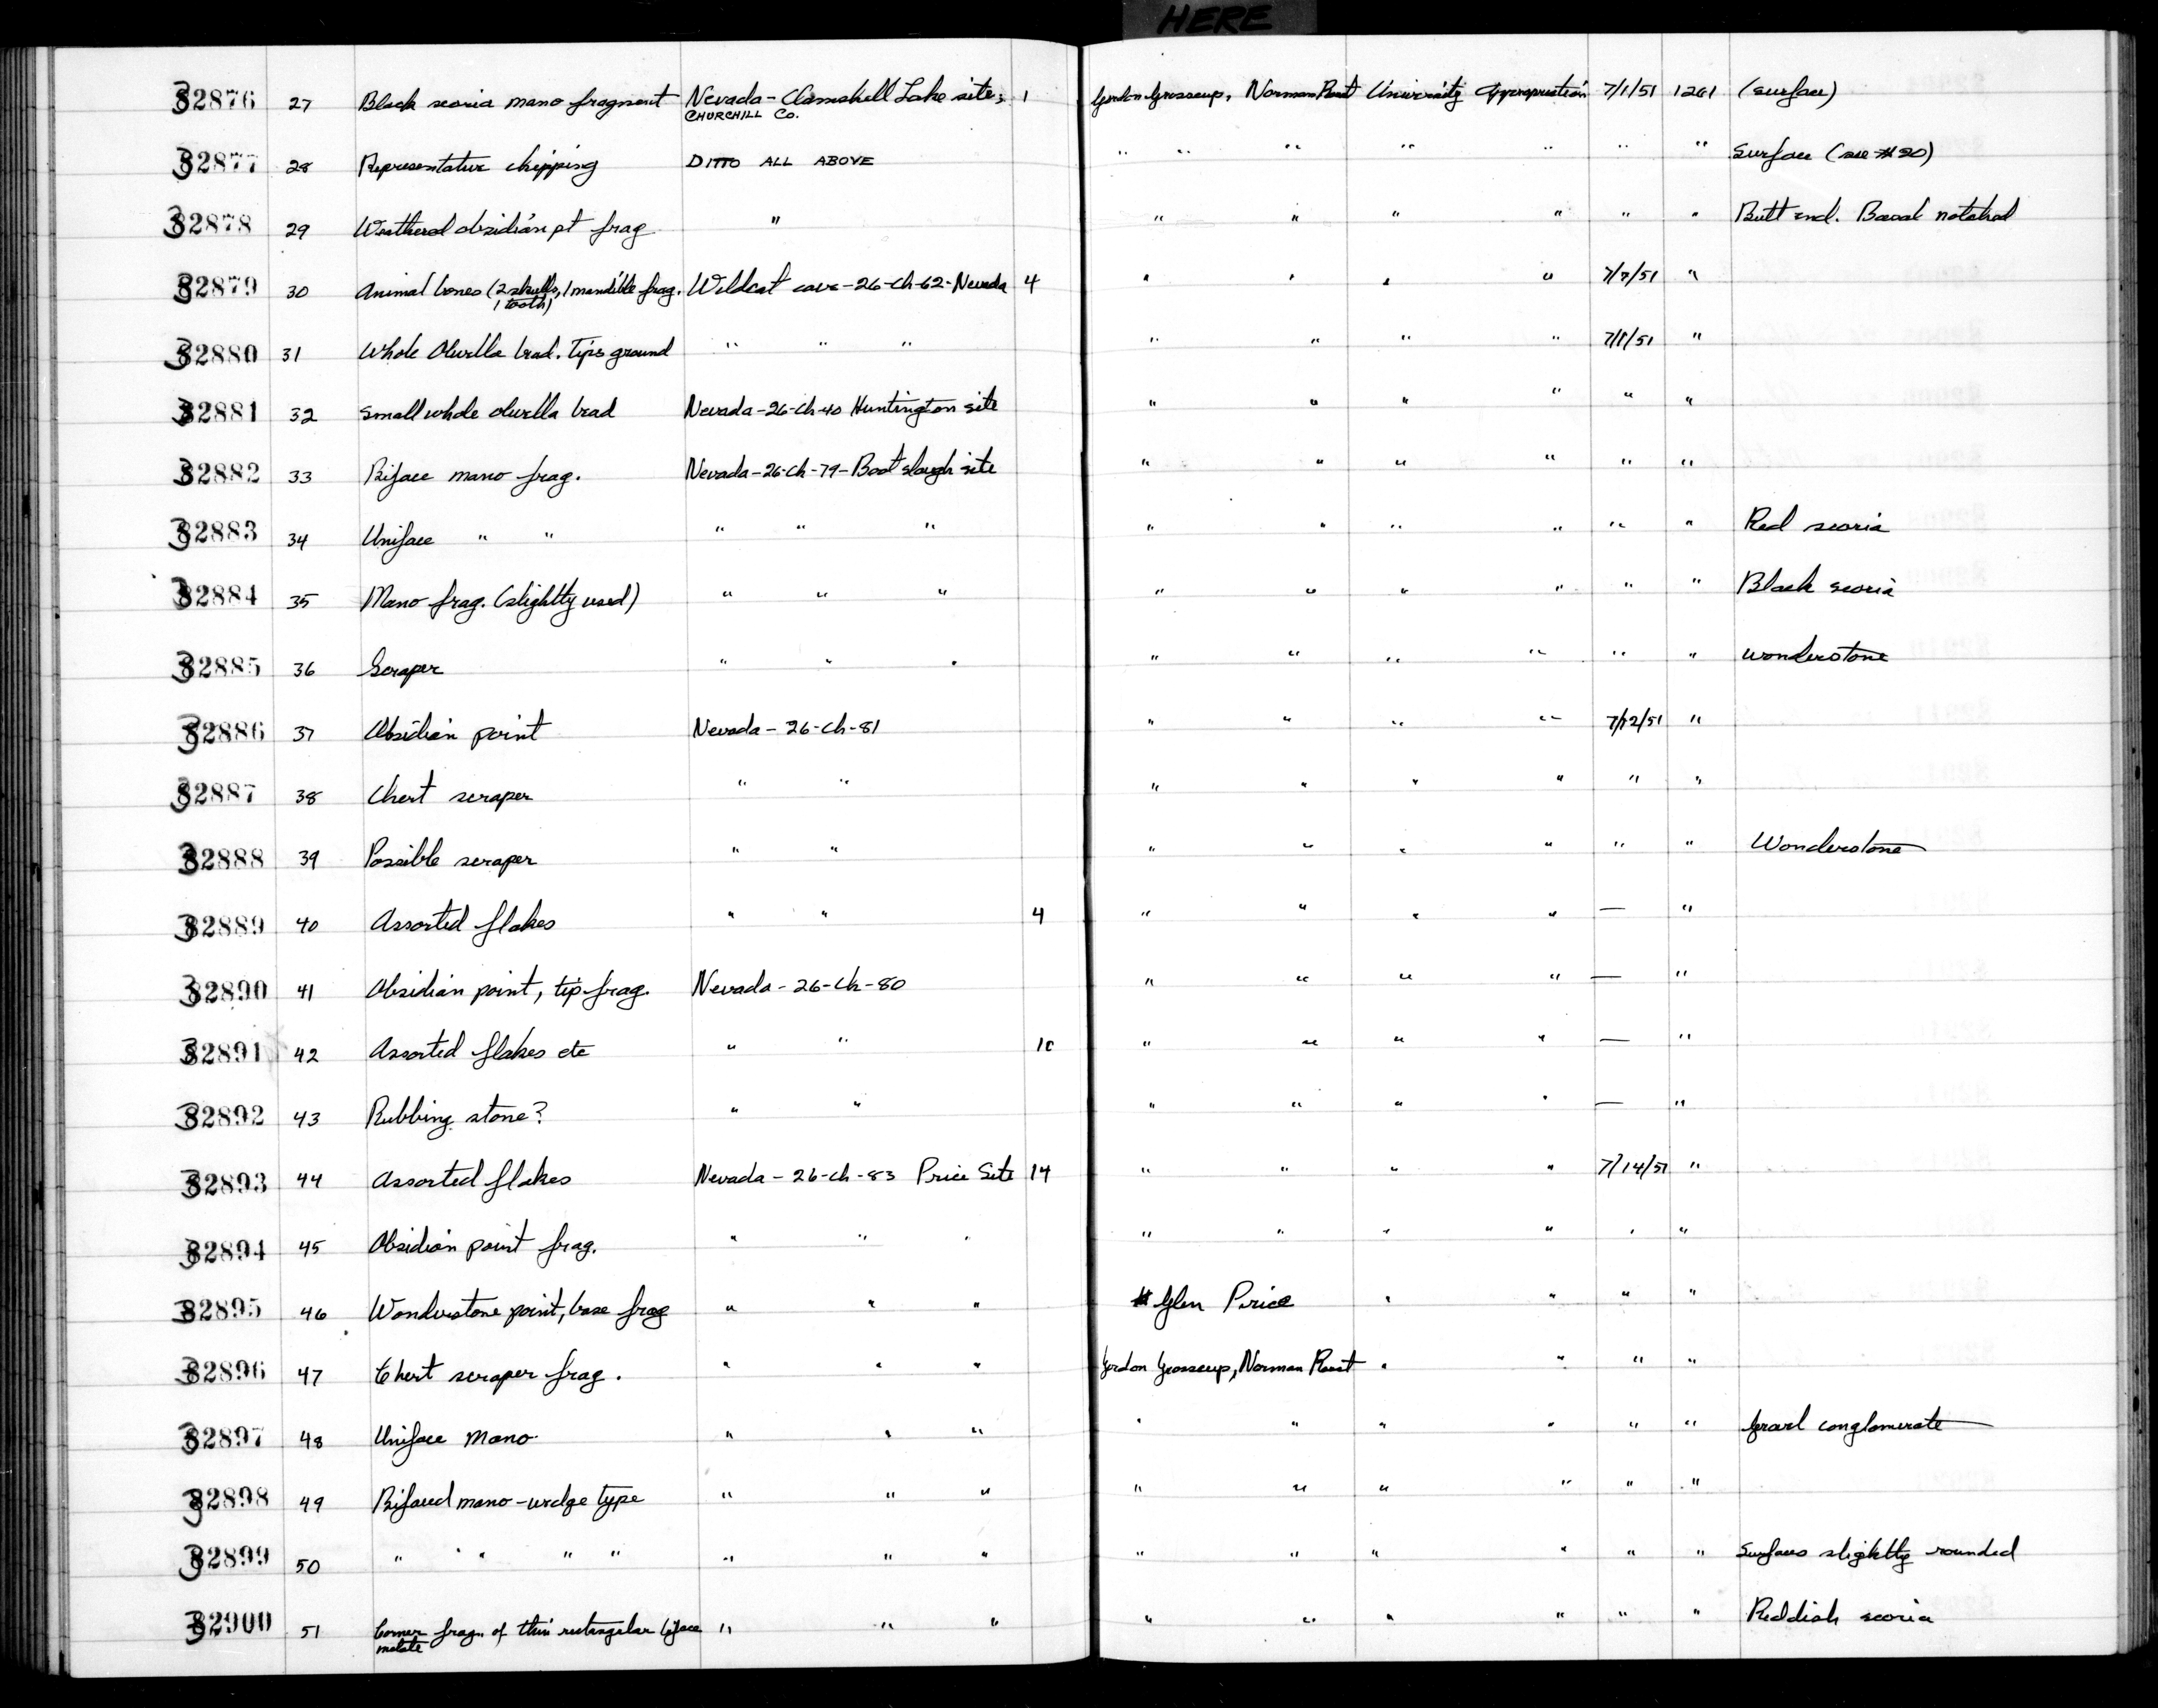 HERE
32876 27 Black scoria mano fragment Nevada - Clamshell Lake site; 1 Gordon Grosscup, Norman Roust University Appropriation 7/1/51 1261 (surface)
CHURCHILL Co.
32877 28 Representative chipping DITTO ALL ABOVE " " " " " " " Surface (see #20)
32878 29 Weathered obsidian pt frag " " " " " " " Butt end. Basal notched
32879 30 Animal bones (2 skulls, 1 mandible frag. Wildcat cave - 26-Ch-62 - Nevada 4 " " " " 7/7/51 "
1 tooth)
32880 31 Whole Olivella bead. Tips ground " " " " " " " "
32881 32 Small whole olivella bead Nevada - 26-Ch-40 Huntington site " " " " " "
32882 33 Biface mano frag. Nevada - 26-Ch-79 - Boat slough site " " " " " "
32883 34 Uniface " " " " " " " " " " " Red scoria
32884 35 Mano frag. (slightly used) " " " " " " " " " Black scoria
32885 36 Scraper " " " " " " " " " wonderstone
32886 37 Obsidian point Nevada - 26-Ch-81 " " " " 7/12/51 "
32887 38 Chert scraper " " " " " " " "
32888 39 Possible scraper " " " " " " " " Wonderstone
32889 40 Assorted flakes " " 4 " " " " — "
32890 41 Obsidian point, tip frag. Nevada - 26-Ch-80 " " " " — "
32891 42 Assorted flakes etc " " 10 " " " " — "
32892 43 Rubbing stone? " " " " " " — "
32893 44 Assorted flakes Nevada - 26-Ch-83 Price Site 14 " " " " 7/14/51 "
32894 45 Obsidian point frag. " " " " " " " " "
32895 46 Wonderstone point, base frag " " " Glen Price " " " "
32896 47 Chert scraper frag. " " " Gordon Grosscup, Norman Roust " " " "
32897 48 Uniface mano " " " " " " " " " Gravel conglomerate
32898 49 Bifaced mano - wedge type " " " " " " " " "
32899 50 " " " " " " " " " " " " " " Surfaces slightly rounded
32900 51 Corner frag. of thin rectangular biface " " " " " " " " " Reddish scoria
metate